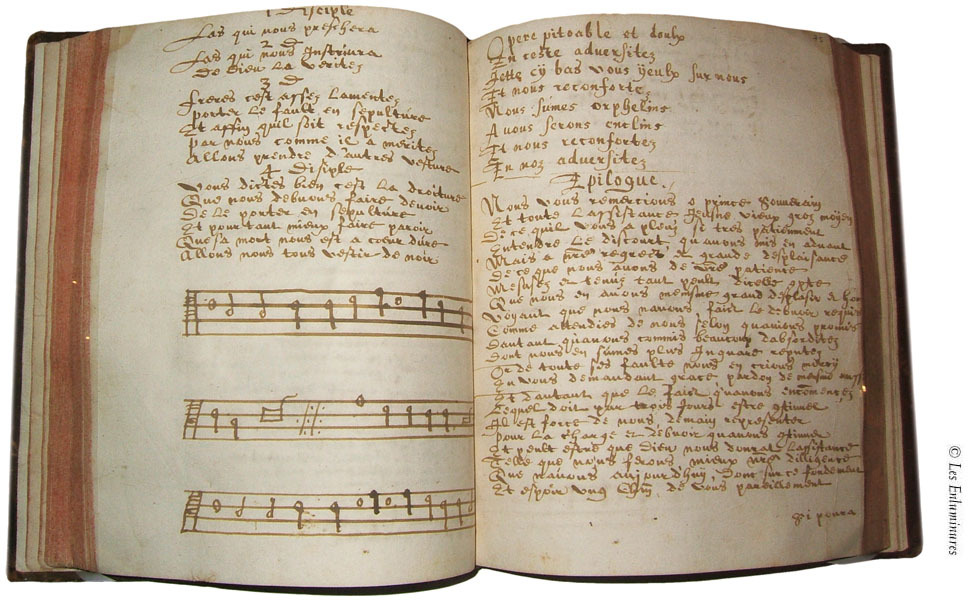 1 Disciple
Las qui nous preschera
2 D
Las qui nous Instruira
De Dieu la verites
3 D
Freres c'est assez lamentez
porter le fault en sepulture
Et affin qu'il soit respectez
par nous comme il a meritez
Allons prendre d'autres vesture
4 Disiple
Vous dictes bien c'est la droiture
Que nous debvons faire debvoir
De le porter en sepulture
Et pour tant mieux faire paroir
Que sa mort nous est a coeur dure
Allons nous tous vestir de noir
O pere pitoable et doulx
En ceste adversitez
Jettez cy bas vous yeulx sur nous
Et nous reconfortez
Nous sumes orphelins
A vous serons enclins
Et nous reconfortez
En noz adversitez
Epilogue.
Nous vous remercions o prince souverain
Et toute l'assistance jeusne vieux groz moyen
De ce quil vous a pleu si tres patiemment
Entendre le discourt quavons mis en advant
Mais a regrect et grande desplaisance
De ce que nous avons de patiente
Mesusez et tenus tant peult
Que nous en avons mesme grand desplaisir
Voyant que nous navons fait le debvoir requis
Comme attendies de nous selon quavions promis
Dautant quavons commis beaucoup dabsurditez
Dont nous en sumes plus reputez
Or de toute ses faulte nous en crions mercy
En vous demandant grace pardon de mesme
Et dautant que le fait quavons
Lequel doit par trois jours estre
Il est force de nous, demain representer
Pour la charge et debvoir quavons
Et peult estre que Dieu nous donrat lassistance
Telle que nous ferons mieux dilligence
Que navons aujourdhuy, Dont sur ce fondement
Et espoir ung chacun, de vous pareillement
© Les Enluminures